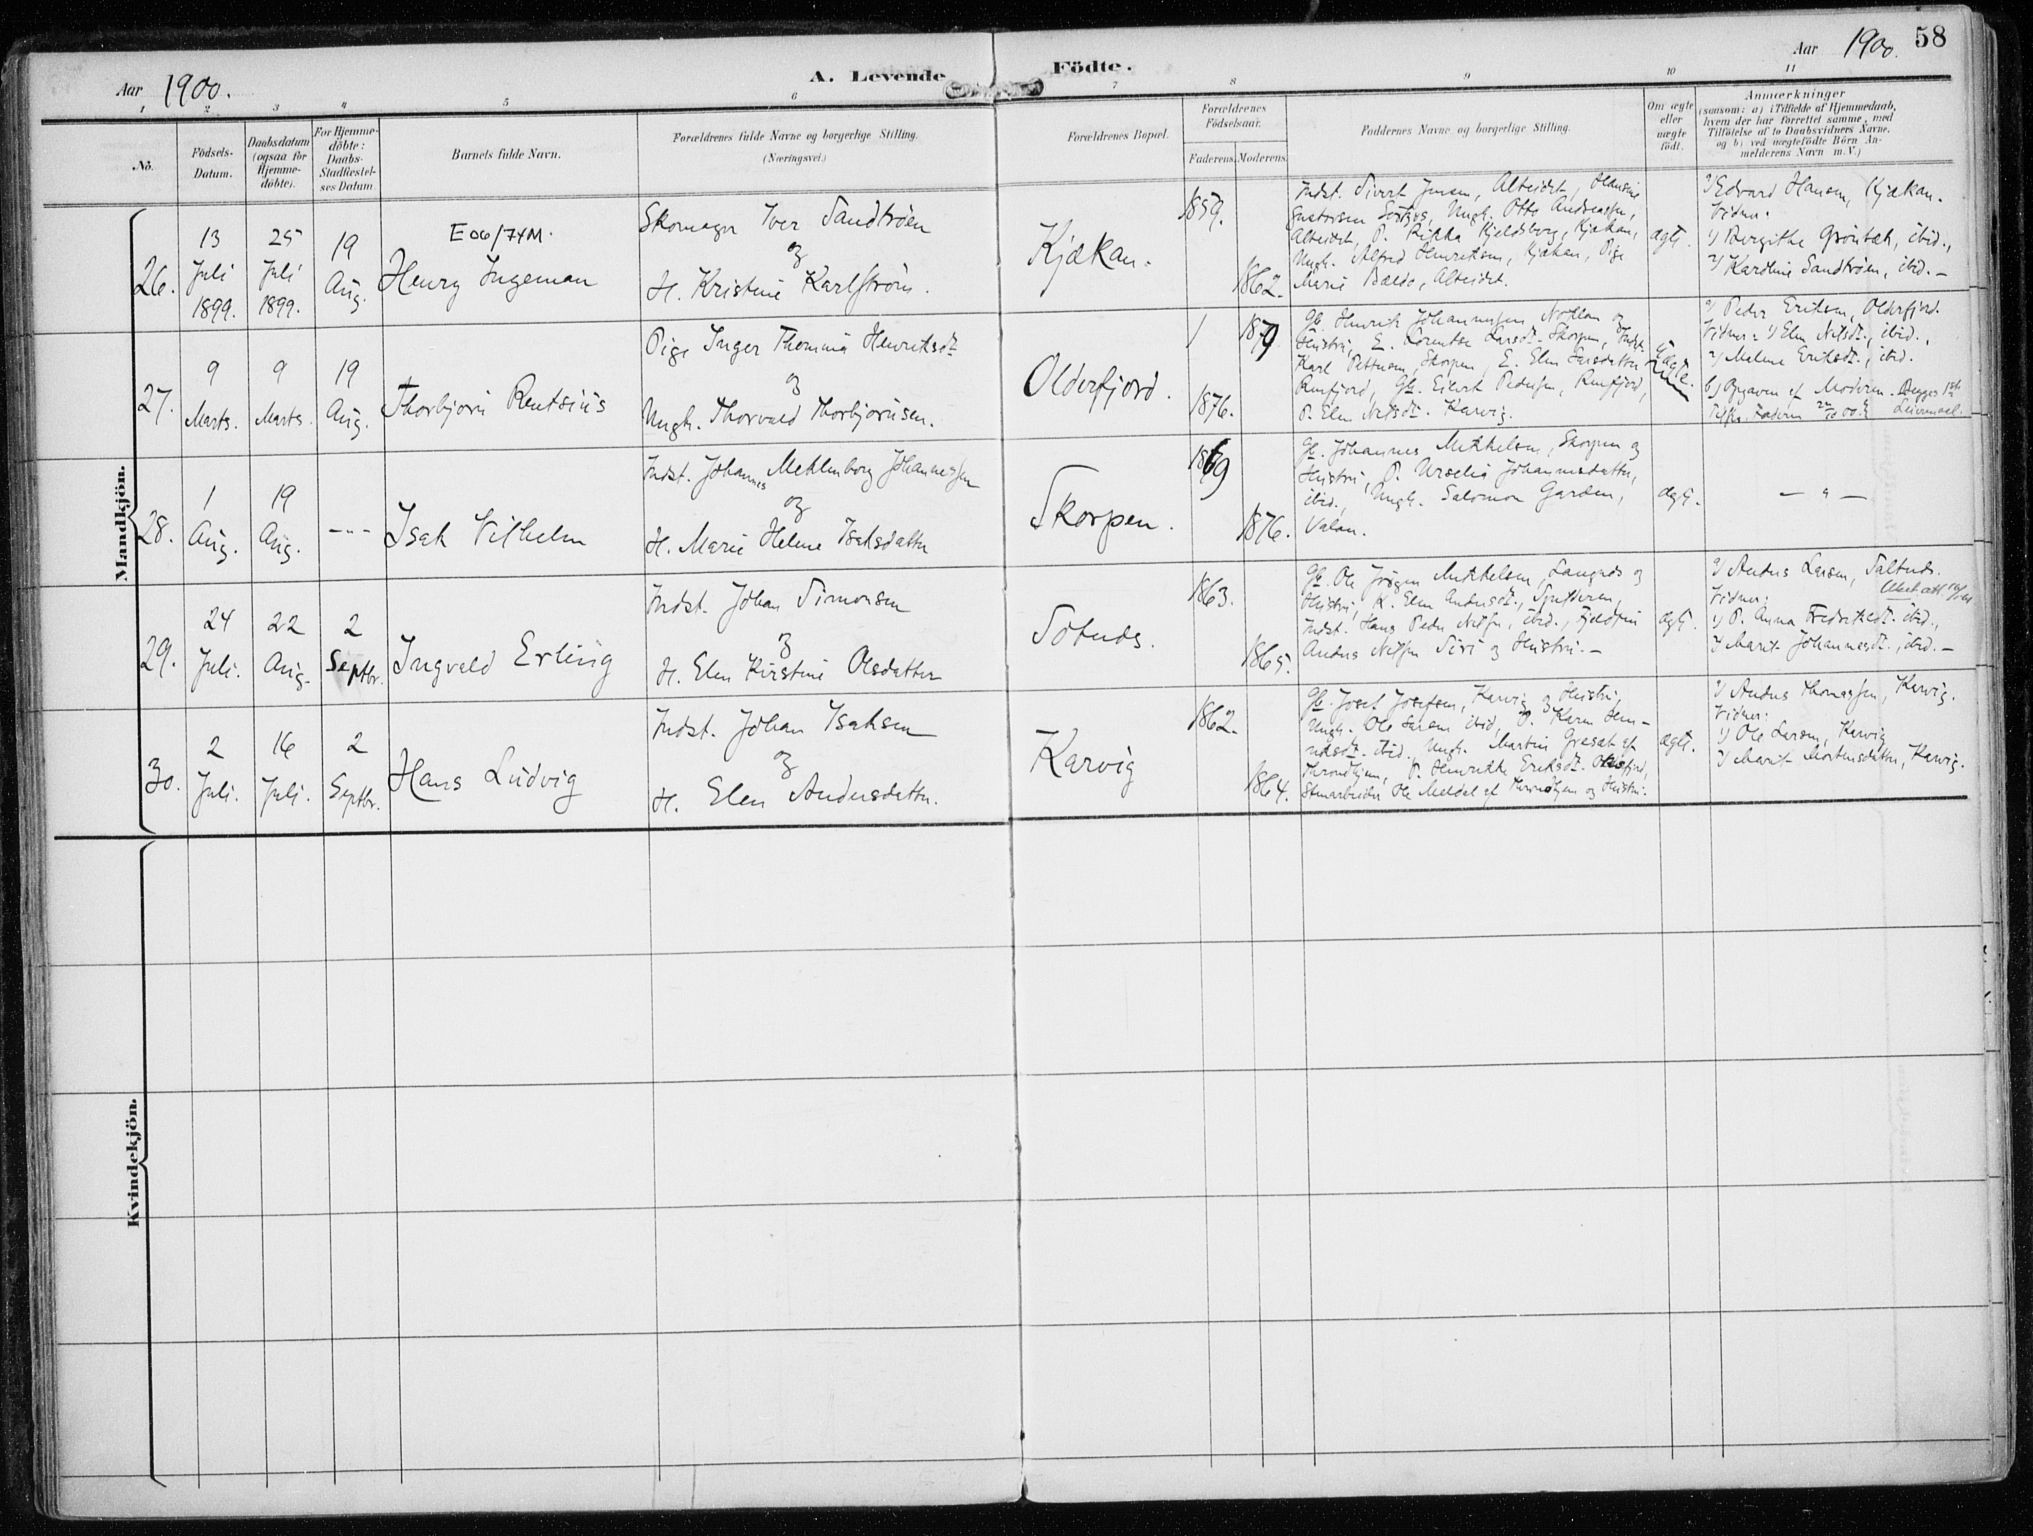 Aar 1900.
A. Levende
Födte.
Aar 1900.
58
1 2 3 4 5 6 7 8 9 10 11
No.
Födsels-
Datum.
Daabsdatum
(ogsaa for
Hjemme-
döbte).
For Hjemme-
döbte:
Daabs-
Stadfæstel-
ses Datum
Barnets fulde Navn.
Forældrenes fulde Navne og borgerlige Stilling.
(Næringsvei.)
Forældrenes Bopæl.
Forældrenes
Födselsaar.
Faderens. Moderens.
Faddernes Navne og borgerlige Stilling.
Om ægte
eller
uægte
födt.
Anmærkninger
(saasom: a) i Tilfælde af Hjemmedaab,
hvem der har forrettet samme, med
Tilföielse af to Daabsvidners Navne,
og b) ved uægtefödte Börn An-
melderens Navn m. V.)
Mandkjön.
26.
13
Juli
1899.
25
Juli
1899.
19
Aug.
E 06/74M.
Henry Ingeman
Skomager Iver Sandtrøen
og
H. Kristine Karlstrøm.
Kjækan.
1859.
1862.
Indst. Sivert Jensen, Alteidet,
Ungk. Otto Andreassen,
Alteidet, P. Rikka Kjeldsberg, Kjækan,
Ungk. Alfred Henriksen, Kjækan, Pige
Marie Bælde, Alteidet.
ægte.
a) Edvard Hansen, Kjækan.
Vidner:
1) Bergithe Grønbæk, ibid.,
2) Karoline Sandtrøen, ibid. —
27.
9
Marts.
9
Marts.
19
Aug.
Thorbjørn Rentsius
Pige Inger Thomine Henriksdt.
og
Ungk. Thorvald Thorbjørnsen.
Olderfjord.
1876.
1879
Gb. Henrik Johannessen, og
Hustru, E. Lorentse Larsdt. Skorpen, Indst.
Karl Pettersen, Skorpen, E. Elen Larsdatter
Gb. Eilert Pedersen,
P. Elen Nilsdt. Karvig.
Uægte.
a) Peder Eriksen, Olderfjord.
Vidner: 1) Elen Nilsdt., ibid.,
2) Malene Eriksdt., ibid.
b) Opgaven af Moderen. Begges 1ste
Leiermaal.
28.
1
Aug.
19
Aug.
---
Isak Vilhelm
Indst. Johannes Meklenborg Johannessen
og
H. Marie Helene Isaksdatter
Skorpen.
1869
1876.
Gb. Johannes Mikkelsen, Skorpen og
Hustru, P. Urselia Johannesdatter,
ibid., Ungk. Salomon Garden,
Valan.
ægte.
— " —
29.
24
Juli.
22
Aug.
2
Septbr.
Ingvald Erling
Indst. Johan Simonsen
og
H. Elen Kirstine Olsdatter
Søtnæs.
1863.
1865.
Gb. Ole Jørgen Mikkelsen, Langnæs og
Hustru, K. Elen Andersdt.,
Indst. Hans Peder Nilsen, ibid.,
Anders Nilsen Siri og Hustru. —
ægte.
a) Anders Larsen, Saltnæs.
Vidner:
1) P. Anna Fredrikkedt. ibid.,
2) Marit Johannesdt., ibid. —
30.
2
Juli.
16
Juli.
2
Septbr.
Hans Ludvig
Indst. Johan Isaksen
og
H. Elen Andersdatter.
Karvig
1862.
1864.
Gb. Josef Josefsen, Karvig og Hustru,
Ungk. Ole Larsen ibid, P. Karen Hen-
riksdt. ibid., Ungk. Martin Gresat af
Throndhjem, P. Henrikke Eriksdt.
Stenarbeider Ole Meldal af Throndhjem og Hustru.
ægte.
a) Anders Thomassen, Karvig.
Vidner:
1) Ole Larsen, Karvig
2) Marit Mortensdatter, Karvig.
Kvindekjön.